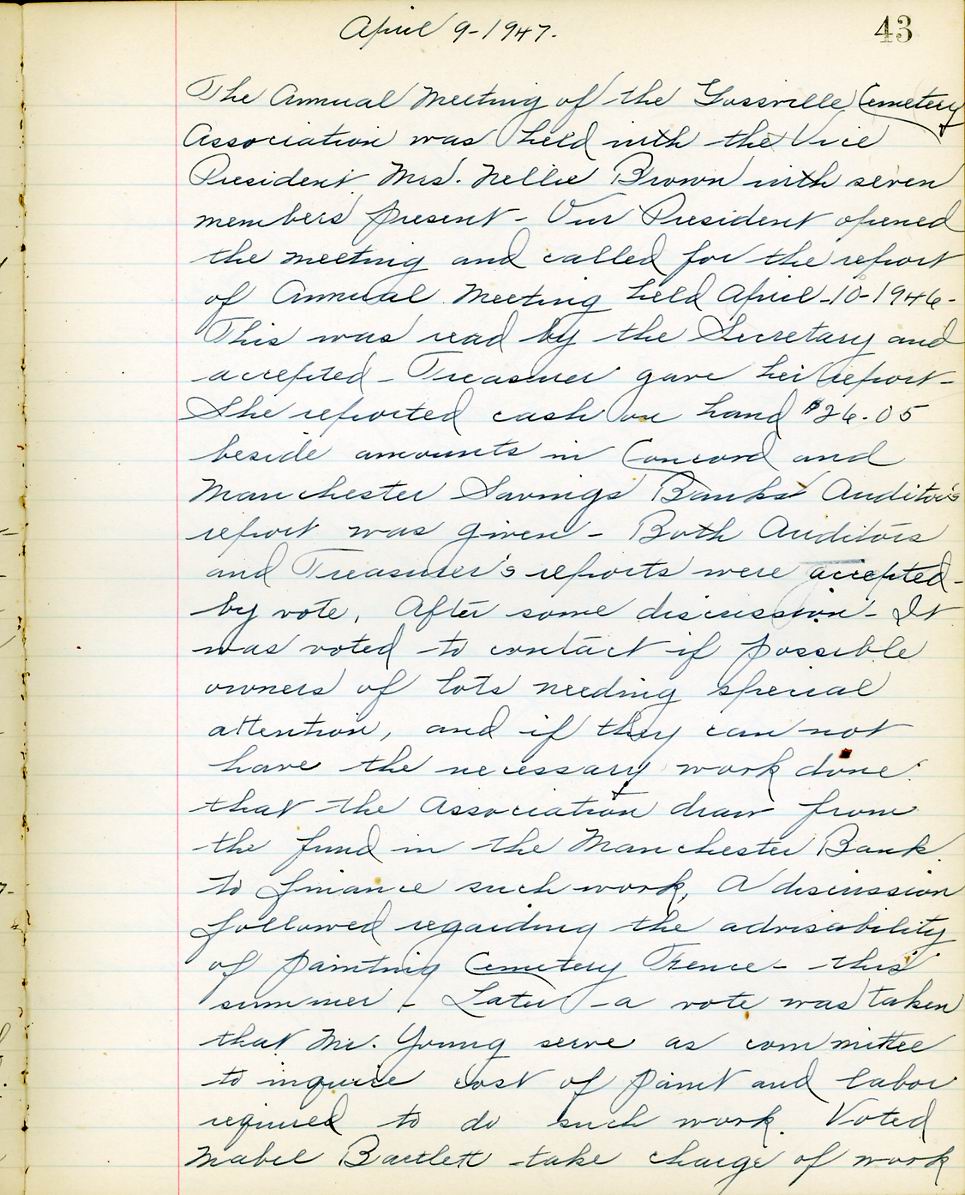 April 9-1947.
43
The Annual Meeting of the Gossville Cemetery
Association was held with the Vice
President Mrs. Nellie Brown with seven
members present - Our President opened
the meeting and called for the report
of Annual Meeting held April-10-1946-
This was read by the Secretary and
accepted - Treasurer gave her report-
She reported cash on hand $26.05
beside amounts in Concord and
Manchester Savings Banks Auditor's
report was given - Both Auditors
and Treasurer's reports were accepted-
by vote. After some discussion - It
was voted to contact if possible
owners of lots needing special
attention, and if they can not
have the necessary work done
that the Association draw from
the fund in the Manchester Bank
to finance such work, A discussion
followed regarding the advisability
of painting Cemetery Fence - this
summer - Later - a vote was taken
that Mr. Young serve as committee
to inquire cost of paint and labor
required to do such work. Voted
Mabel Bartlett take charge of work